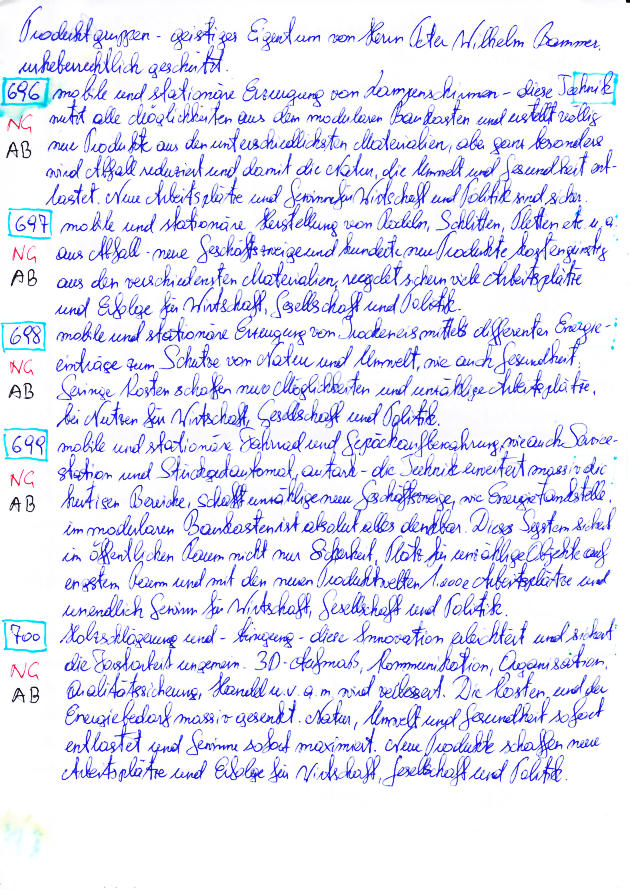 Produktgruppen - geistiges Eigentum von Herrn Peter Wilhelm Bammer,
urheberrechtlich geschützt.
696 mobile und stationäre Erzeugung von Lampenschirmen - diese Technik
NG nutzt alle Möglichkeiten aus dem modularen Baukasten und erstellt völlig
AB neue Produkte aus den unterschiedlichsten Materialien, aber ganz besonders
wird Abfall reduziert und damit die Natur, die Umwelt und Gesundheit ent-
lastet. Neue Arbeitsplätze und Gewinne für Wirtschaft und Politik sind sicher.
697 mobile und stationäre Herstellung von Rodeln, Schlitten, Pletten etc. u. a.
NG aus Abfall - neue Geschäftszweige und hunderte neue Produkte kostengünstig
AB aus den verschiedensten Materialien, recycelt sichern viele Arbeitsplätze
und Erfolge für Wirtschaft, Gesellschaft und Politik.
698 mobile und stationäre Erzeugung von Trockeneis mittels differenter Energie-
NG einträge zum Schutze von Natur und Umwelt, wie auch Gesundheit.
AB Geringe Kosten schaffen neue Möglichkeiten und unzählige Arbeitsplätze,
bei Nutzen für Wirtschaft, Gesellschaft und Politik.
699 mobile und stationäre Fahrrad und Gepäckaufbewahrung, wie auch Service-
NG station und Stückgutautomat, autark - die Technik erweitert massiv die
AB heutigen Bereiche, schafft unzählige neue Geschäftszweige, wie Energietankstelle,
im modularen Baukasten ist absolut alles denkbar. Dieses System sichert
im öffentlichen Raum nicht nur Sicherheit, Platz für unzählige Objekte auf
engstem Raum und mit den neuen Produktwelten 1.000e Arbeitsplätze und
unendlich Gewinn für Wirtschaft, Gesellschaft und Politik.
700 Holzschlägerung und - bringung - diese Innovation erleichtert und sichert
NG die Forstarbeit ungemein. 3D-Aufmaß, Kommunikation, Organisation,
AB Qualitätssicherung, Handel u. v. a. m. wird verbessert. Die Kosten, und der
Energiebedarf massiv gesenkt. Natur, Umwelt und Gesundheit sofort
entlastet und Gewinne sofort maximiert. Neue Produkte schaffen neue
Arbeitsplätze und Erfolge für Wirtschaft, Gesellschaft und Politik.